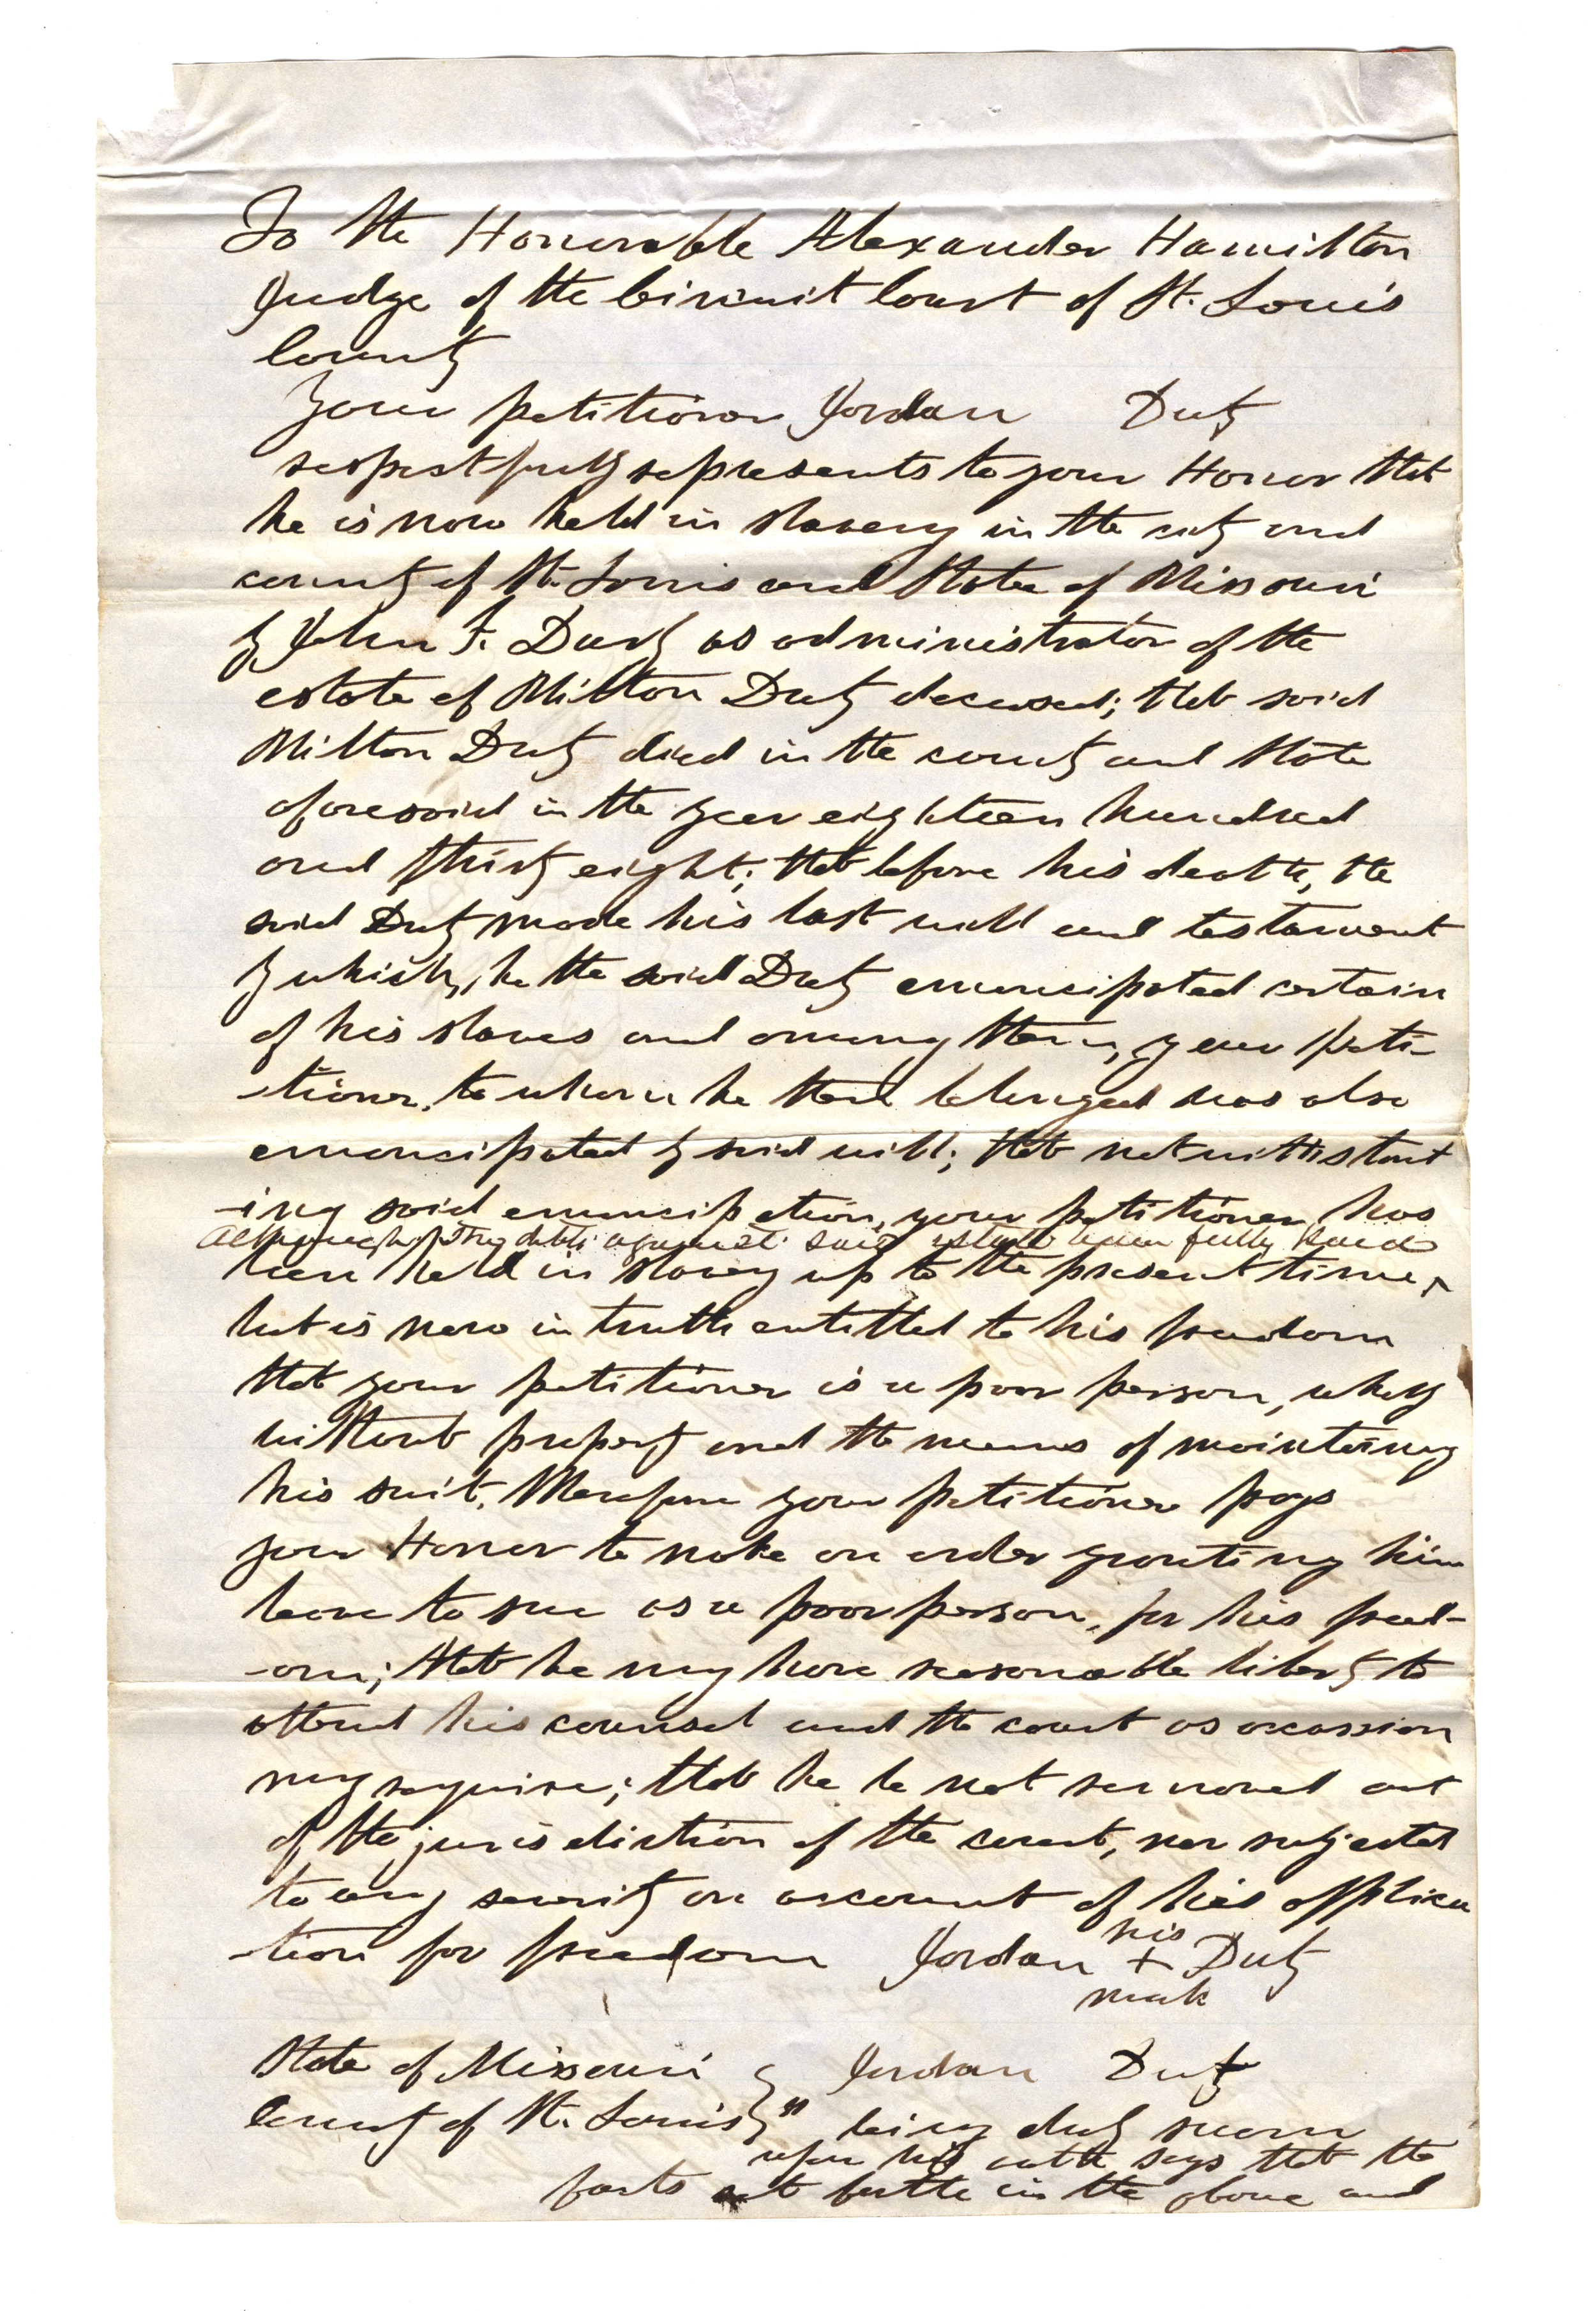 To the Honorable Alexander Hamilton
Judge of the Circuit Court of St. Louis
County
Your petitioner Jordan Duty
respectfully represents to your Honor that
he is now held in slavery in the city and
county of St. Louis and State of Missouri
by John F. Darby as administrator of the
estate of Milton Duty deceased; that said
Milton Duty died in the county and State
aforesaid in the year eighteen hundred
and thirty eight; that before his death, the
said Duty made his last will and testament
by which, he the said Duty emancipated certain
of his slaves and among them, your peti-
-tioner, to whom he then belonged was also
emancipated by said will; that notwithstand
-ing said emancipation, your petitioner has
Although the debts against said estate been fully paid
been held in slavery up to the present time,^
but is now in truth entitled to his freedom
that your petitioner is a poor person, wholly
without property and the means of maintaining
his suit. Wherefore your petitioner prays
your Honor to make an order granting him
leave to sue as a poor person, for his freed-
-om; that he may have reasonable liberty to
attend his counsel and the court as occasion
may require; that he be not removed out
of the jurisdiction of the court, nor subjected
to any severity on account of his applica
-tion for freedom Jordan his + mark Duty
State of Missouri } Jordan Duty
County of St. Louis } ss being duly sworn
upon his oath says that the
facts set forth in the above and